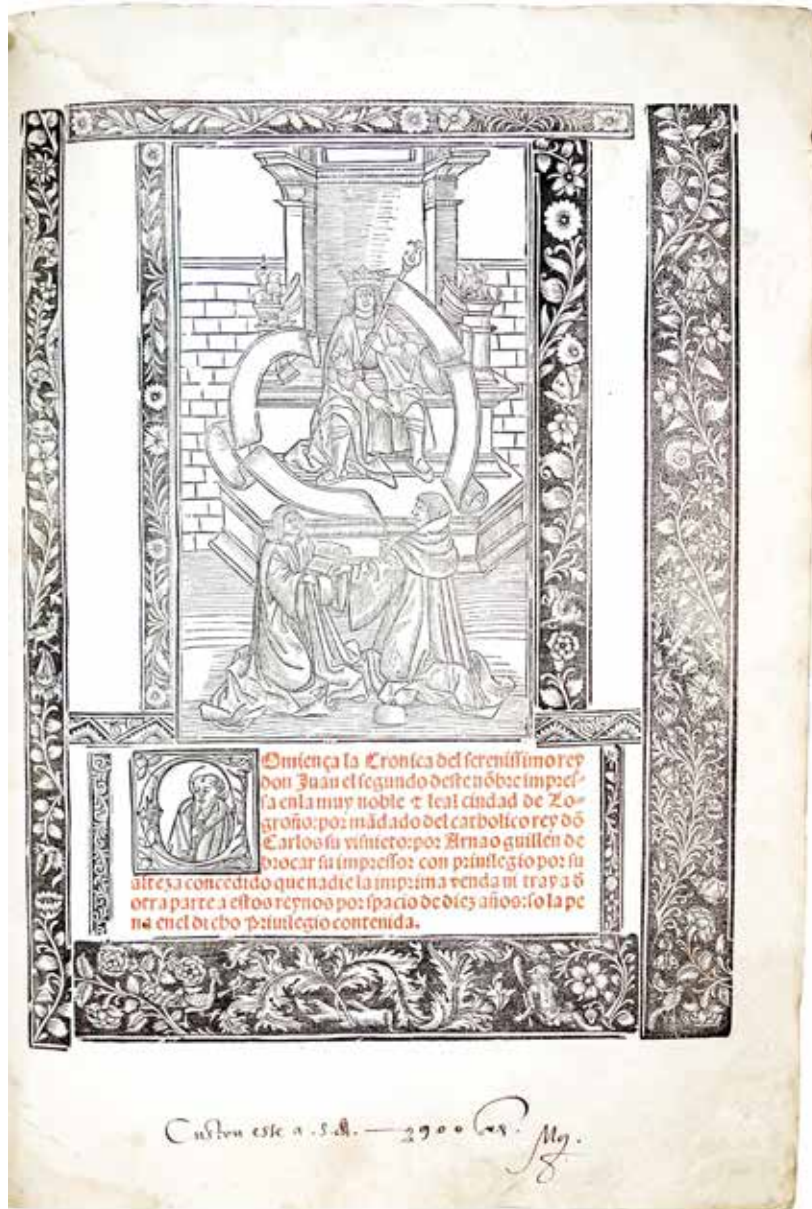 Comiença la Cronica del serenissimo rey
don Juan el segundo deste nõbre impres-
sa enla muy noble ⁊ leal ciudad de Lo-
groño: por mãdado del catholico rey dõ
Carlos su visnieto: por Arnao guillen de
brocar su impressor con priuilegio por su
alteza concedido que nadie la imprima venda ni traya d̃
otra parte a estos reynos por spacio de diez años: so la pe
na enel dicho Priuilegio contenida.
este a 2900